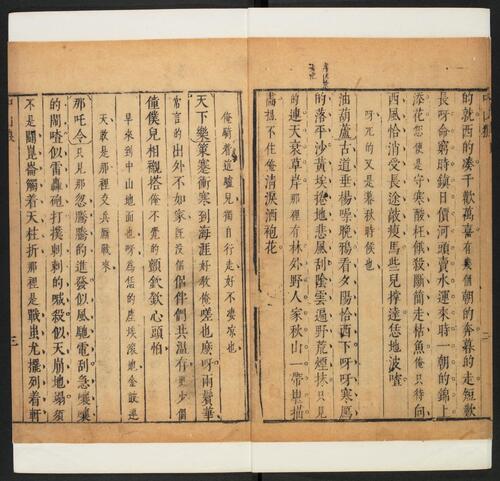 的就西的湊千歡萬喜有幾個朝的奔暮的走短歎
長呀命窮時鎮日價河頭賣水運來時一朝的錦上
添花您便是守寒酸枉餓殺斷簡走枯魚俺只待向
西風恰消受長途敲瘦馬些兒撑達恁地波喳
呀兀的又是暮秋時候也
油葫蘆古道垂楊噪晚鴉看夕陽恰西下呀呀寒鴈
的落平沙黃埃捲地悲風刮陰雲遍野荒煙抹只見
的連天衰草岸那裡有林外野人家秋山一帶
畵禁不住俺清淚洒袍花
俺騎着這驢兒獨自行走好不凄凉也
天下樂策蹇衝寒到海涯好教俺嗟也麽呀兩鬢華
常言的出外不如家旣沒個侶伴們共温存更少個
僮僕兒相覷搭俺不覺的顫欽欽心頭怕
早來到中山地面也呀爲恁的塵埃滾地金鼓連
天敢是那裡交兵厮戰來
那吒令只見那忽騰騰的進發似風馳電刮急嚷嚷
的閙喳似雷轟砲打撲剌剌的喊殺似天崩地塌須
不是鬪崑崙觸着天柱折那裡是戰蚩尤擺列着軒
三